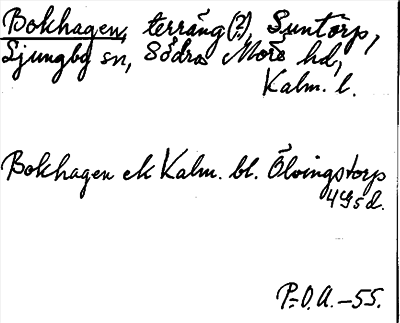 Bokhagen, terräng(?), Suntorp,
Ljungby sn, Södra Möre hd,
Kalm. l.
Bokhagen ek Kalm. bl. Ölvingstorp
4G5d.
P.O.A. -55.